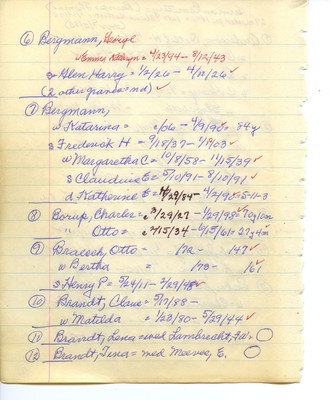 ⑥ Bergmann, George
w Emma Kathryn = 4/23/94 - 8/12/43
s Glen Harry = 1/2/26 - 4/21/26 ✓
(2 other graves = md) ✓
⑦ Bergmann,
w Katarina = c/06 - 4/9/90 = 84y
s Frederick H = 9/18/37 - 1/19/03 ✓
w Margaretha C = 10/8/58 - 1/15/39 ✓
s Claudius E = 5/10/91 - 8/10/91 ✓
d Katherine E = 4/29/84 - 4/2/90 = 5-11-3
⑧ Borup, Charles = c 3/29/27 - 1/29/98 = 70y10m
" Otto = c 3/15/34 - 6/15/61 = 27y4m ✓
⑨ Bracock, Otto - 172 - 147 ✓
w Bertha = 173 - 161 ✓
s Henry P = 5/24/11 - 2/29/48 ✓
⑩ Brandt, Claus = 9/17/88 -
w Matilda = 1/23/80 - 5/29/44 ✓
⑪ Brandt, Lena = wed Lambrecht,
⑫ Brandt, Tena = med Meeves, E.